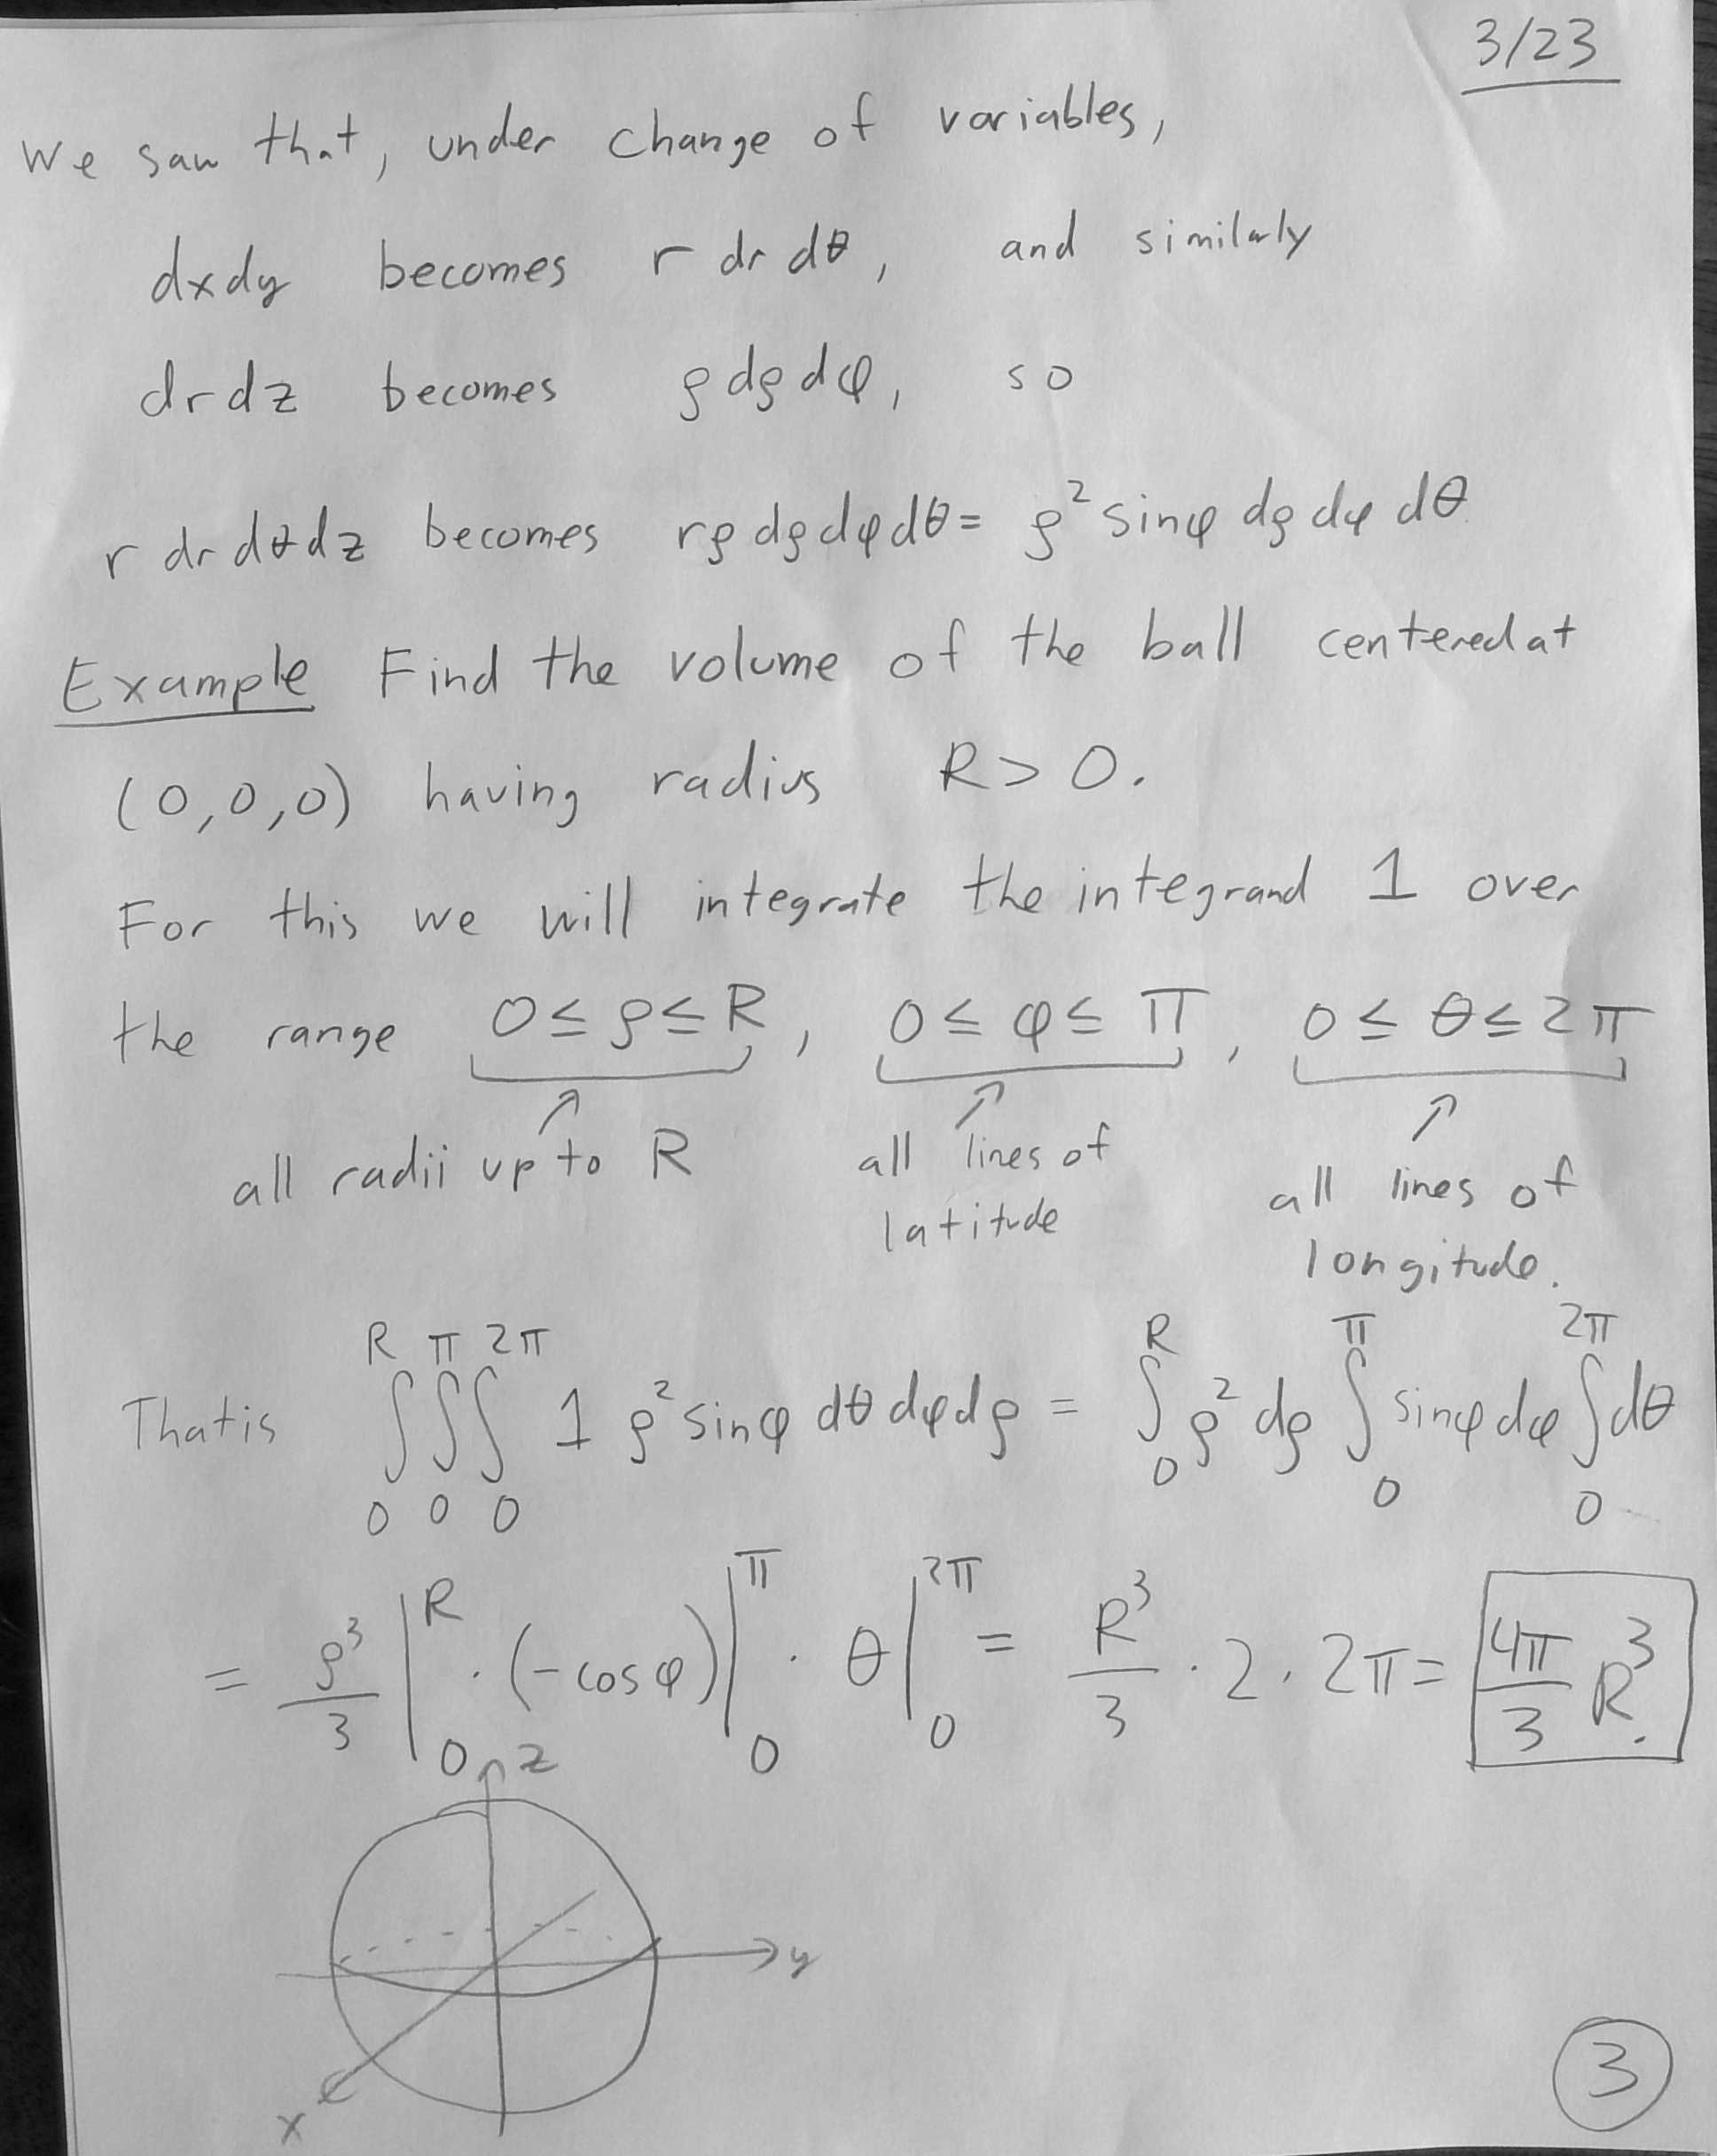 3/23
We saw that, under change of variables,
dxdy becomes r dr dθ, and similarly
drdz becomes ρ dρ dφ, so
r dr dθ dz becomes rρ dρ dφ dθ = ρ² sinφ dρ dφ dθ
Example Find the volume of the ball centered at
(0,0,0) having radius R > 0.
For this we will integrate the integrand 1 over
the range 0 ≤ ρ ≤ R, 0 ≤ φ ≤ π, 0 ≤ θ ≤ 2π
all radii up to R all lines of latitude all lines of longitude.
That is ∫₀^R ∫₀^π ∫₀^2π 1 ρ² sinφ dθ dφ dρ = ∫₀^R ρ² dρ ∫₀^π sinφ dφ ∫₀^2π dθ
= ρ³/3 |₀^R · (-cosφ) |₀^π · θ |₀^2π = R³/3 · 2 · 2π = 4π/3 R³.
z
y
x
3